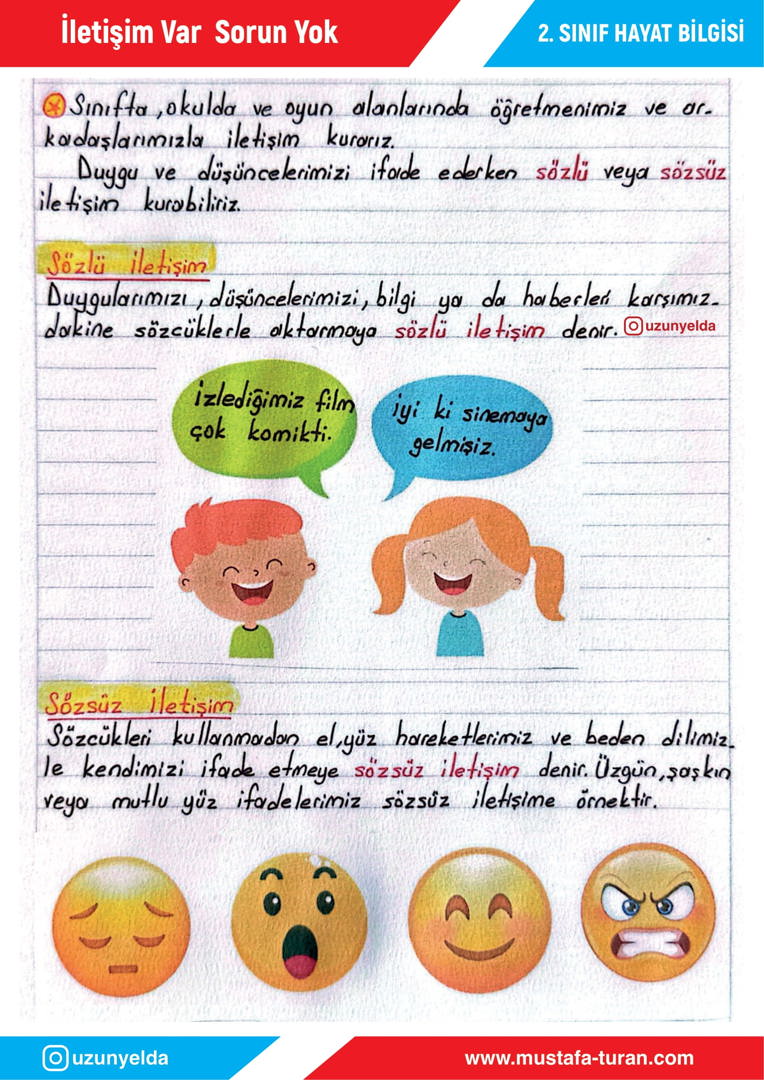 İletişim Var Sorun Yok
2. SINIF HAYAT BİLGİSİ
Sınıfta, okulda ve oyun alanlarında öğretmenimiz ve ar-
kadaşlarımızla iletişim kurarız.
Duygu ve düşüncelerimizi ifade ederken sözlü veya sözsüz
iletişim kurabiliriz.
Sözlü iletişim
Duygularımızı, düşüncelerimizi, bilgi ya da haberleri karşımız-
dakine sözcüklerle aktarmaya sözlü iletişim denir.
uzunyelda
İzlediğimiz film
çok komikti.
iyi ki sinemaya
gelmişiz.
Sözsüz İletişim
Sözcükleri kullanmadan el, yüz hareketlerimiz ve beden dilimiz-
le kendimizi ifade etmeye sözsüz iletişim denir. Üzgün, şaşkın
veya mutlu yüz ifadelerimiz sözsüz iletişime örnektir.
uzunyelda
www.mustafa-turan.com